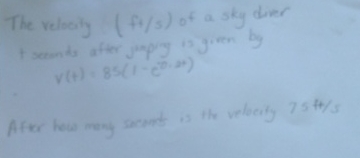 The velocity (ft/s) of a sky diver
t seconds after jumping is given by
v(t) = 85(1 - e
After how many seconds is the velocity 75 ft/s